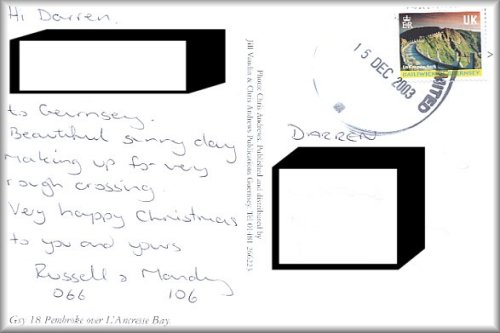 Hi Darren.
to Guernsey.
Beautiful sunny day
making up for very
rough crossing.
Very happy Christmas
to you and yours
Russell & Mandy
066 106
Gsy 18. Pembroke over L'Ancresse Bay.
Photo: Chris Andrews. Published and distributed by
Jill Vaudin & Chris Andrews Publications Guernsey. Tel: 01481 266223
15 DEC 2003
UK
BAILIWICK OF GUERNSEY
DARREN